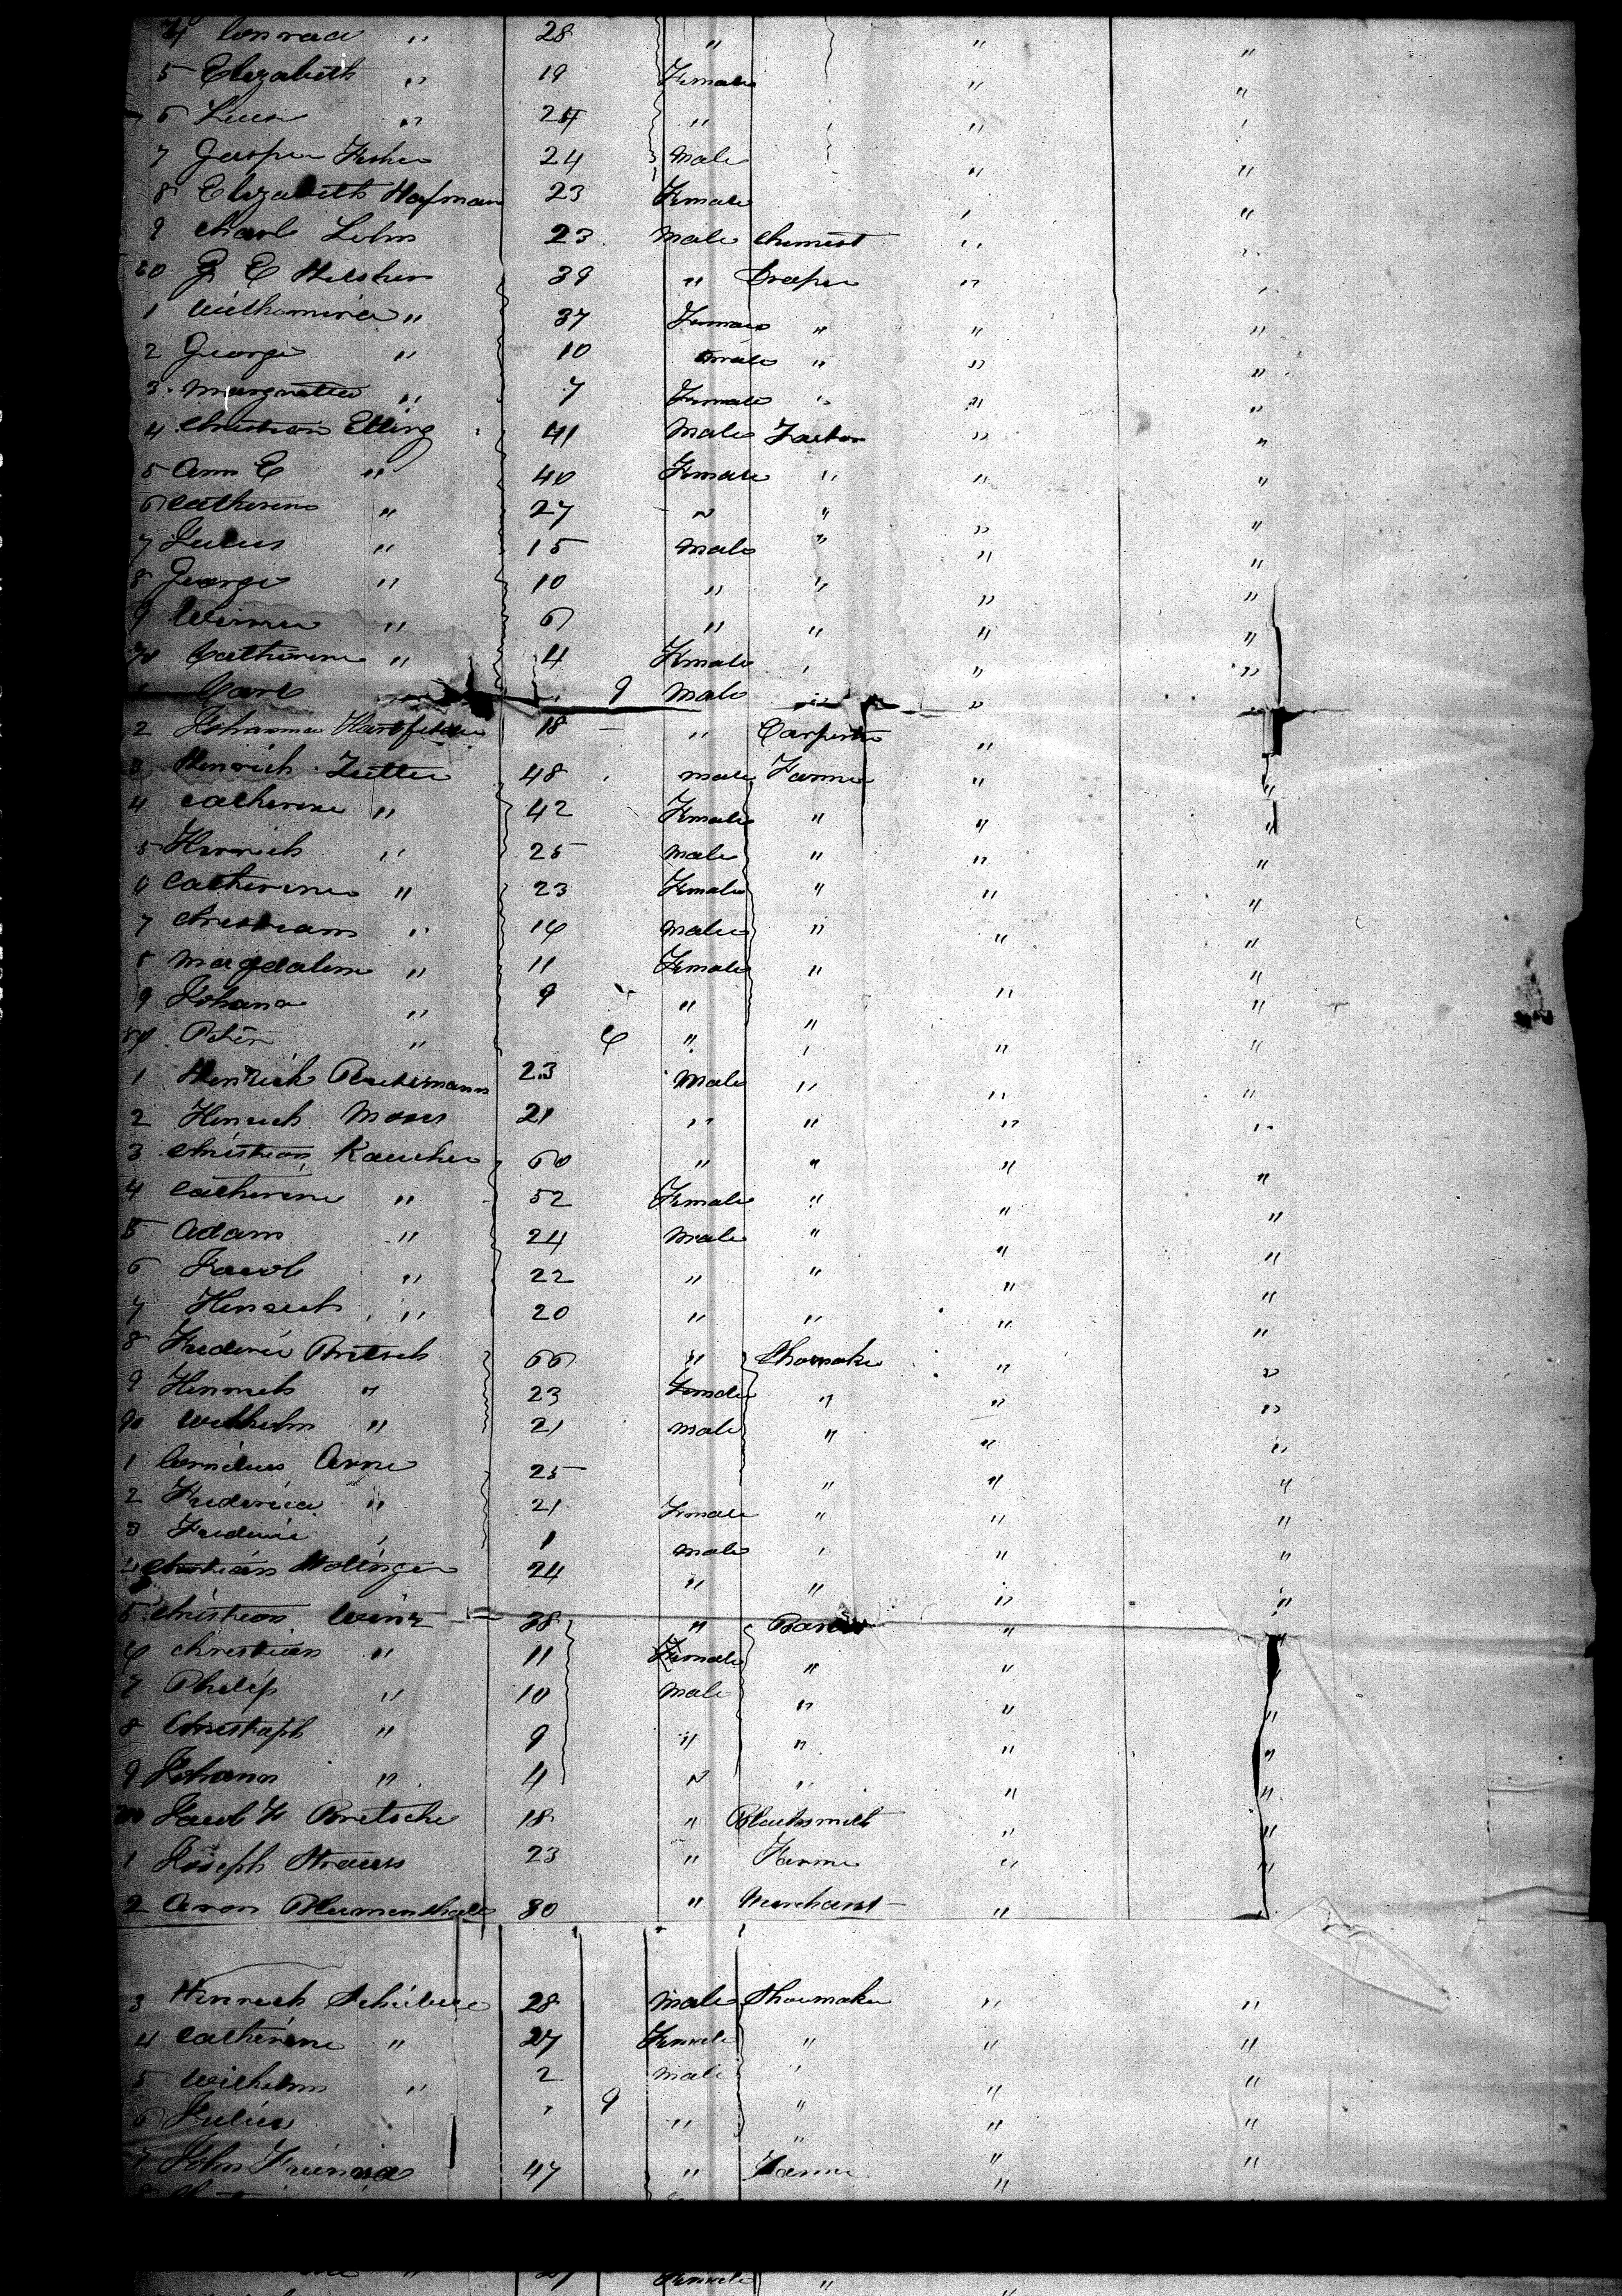 4 Conrad " 28 " " "
5 Elizabeth " 19 Female " "
6 " 24 " "
7 Jasper Fisher 24 Male " "
8 Elizabeth Hofman 23 Female "
9 Charl Lohn 23 Male Chemist "
60 G E 39 " "
1 " 37 Female " " "
2 George " 10 Male " " "
3 Margrattee " 7 Female " " "
4 Christian Etling 41 Male " "
5 Ann E " 40 Female " " "
6 Catherine " 27 " " " "
7 Julius " 15 Male " " "
8 George " 10 " " " "
9 " 6 " " " "
70 Catherine " 4 Female " "
1 Carl 9 Male " "
2 Johannes 18 " Carpenter "
3 Heinrich 48 Male Farmer " "
4 Catherine " 42 Female " " "
5 Henrich " 25 Male " " "
6 Catherine " 23 Female " " "
7 Christians " 14 Male " " "
8 Magdalene " 11 Female " "
9 Johana " 9 " " "
80 Peter " 6 " " "
1 Henrich 23 Male " " "
2 Henrich Moses 21 " " "
3 Christian Kaucher 60 " " " "
4 Catherine " 52 Female " " "
5 Adam " 24 Male " " "
6 Jacob " 22 " " " "
7 Henrich " 20 " " " "
8 Frederic Bretsch 66 " Shoemaker " "
9 Henrich " 23 Female " " "
90 Wilhelm " 21 Male " " "
1 Cornelius Arne 25 " " "
2 Frederica " 21 Female " " "
3 Frederic 1 Male " "
4 Christian Hottinger 24 " " " "
5 Christian Winz 38 " " "
6 Christian " 11 Female " "
7 Philip " 10 Male " " "
8 Christoph " 9 " " " "
9 Johann " 4 " " " "
Jacob F Bretsche 18 " Blacksmith " "
1 Joseph Strauss 23 " Farmer " "
2 Aron Blumenthall 30 " Merchant "
3 Henrich 28 Male Shoemaker " "
4 Catherine " 27 Female " " "
5 Wilhelm " 2 Male " " "
6 Julius 9 " " " "
7 John 47 " Farmer " "
Female " "